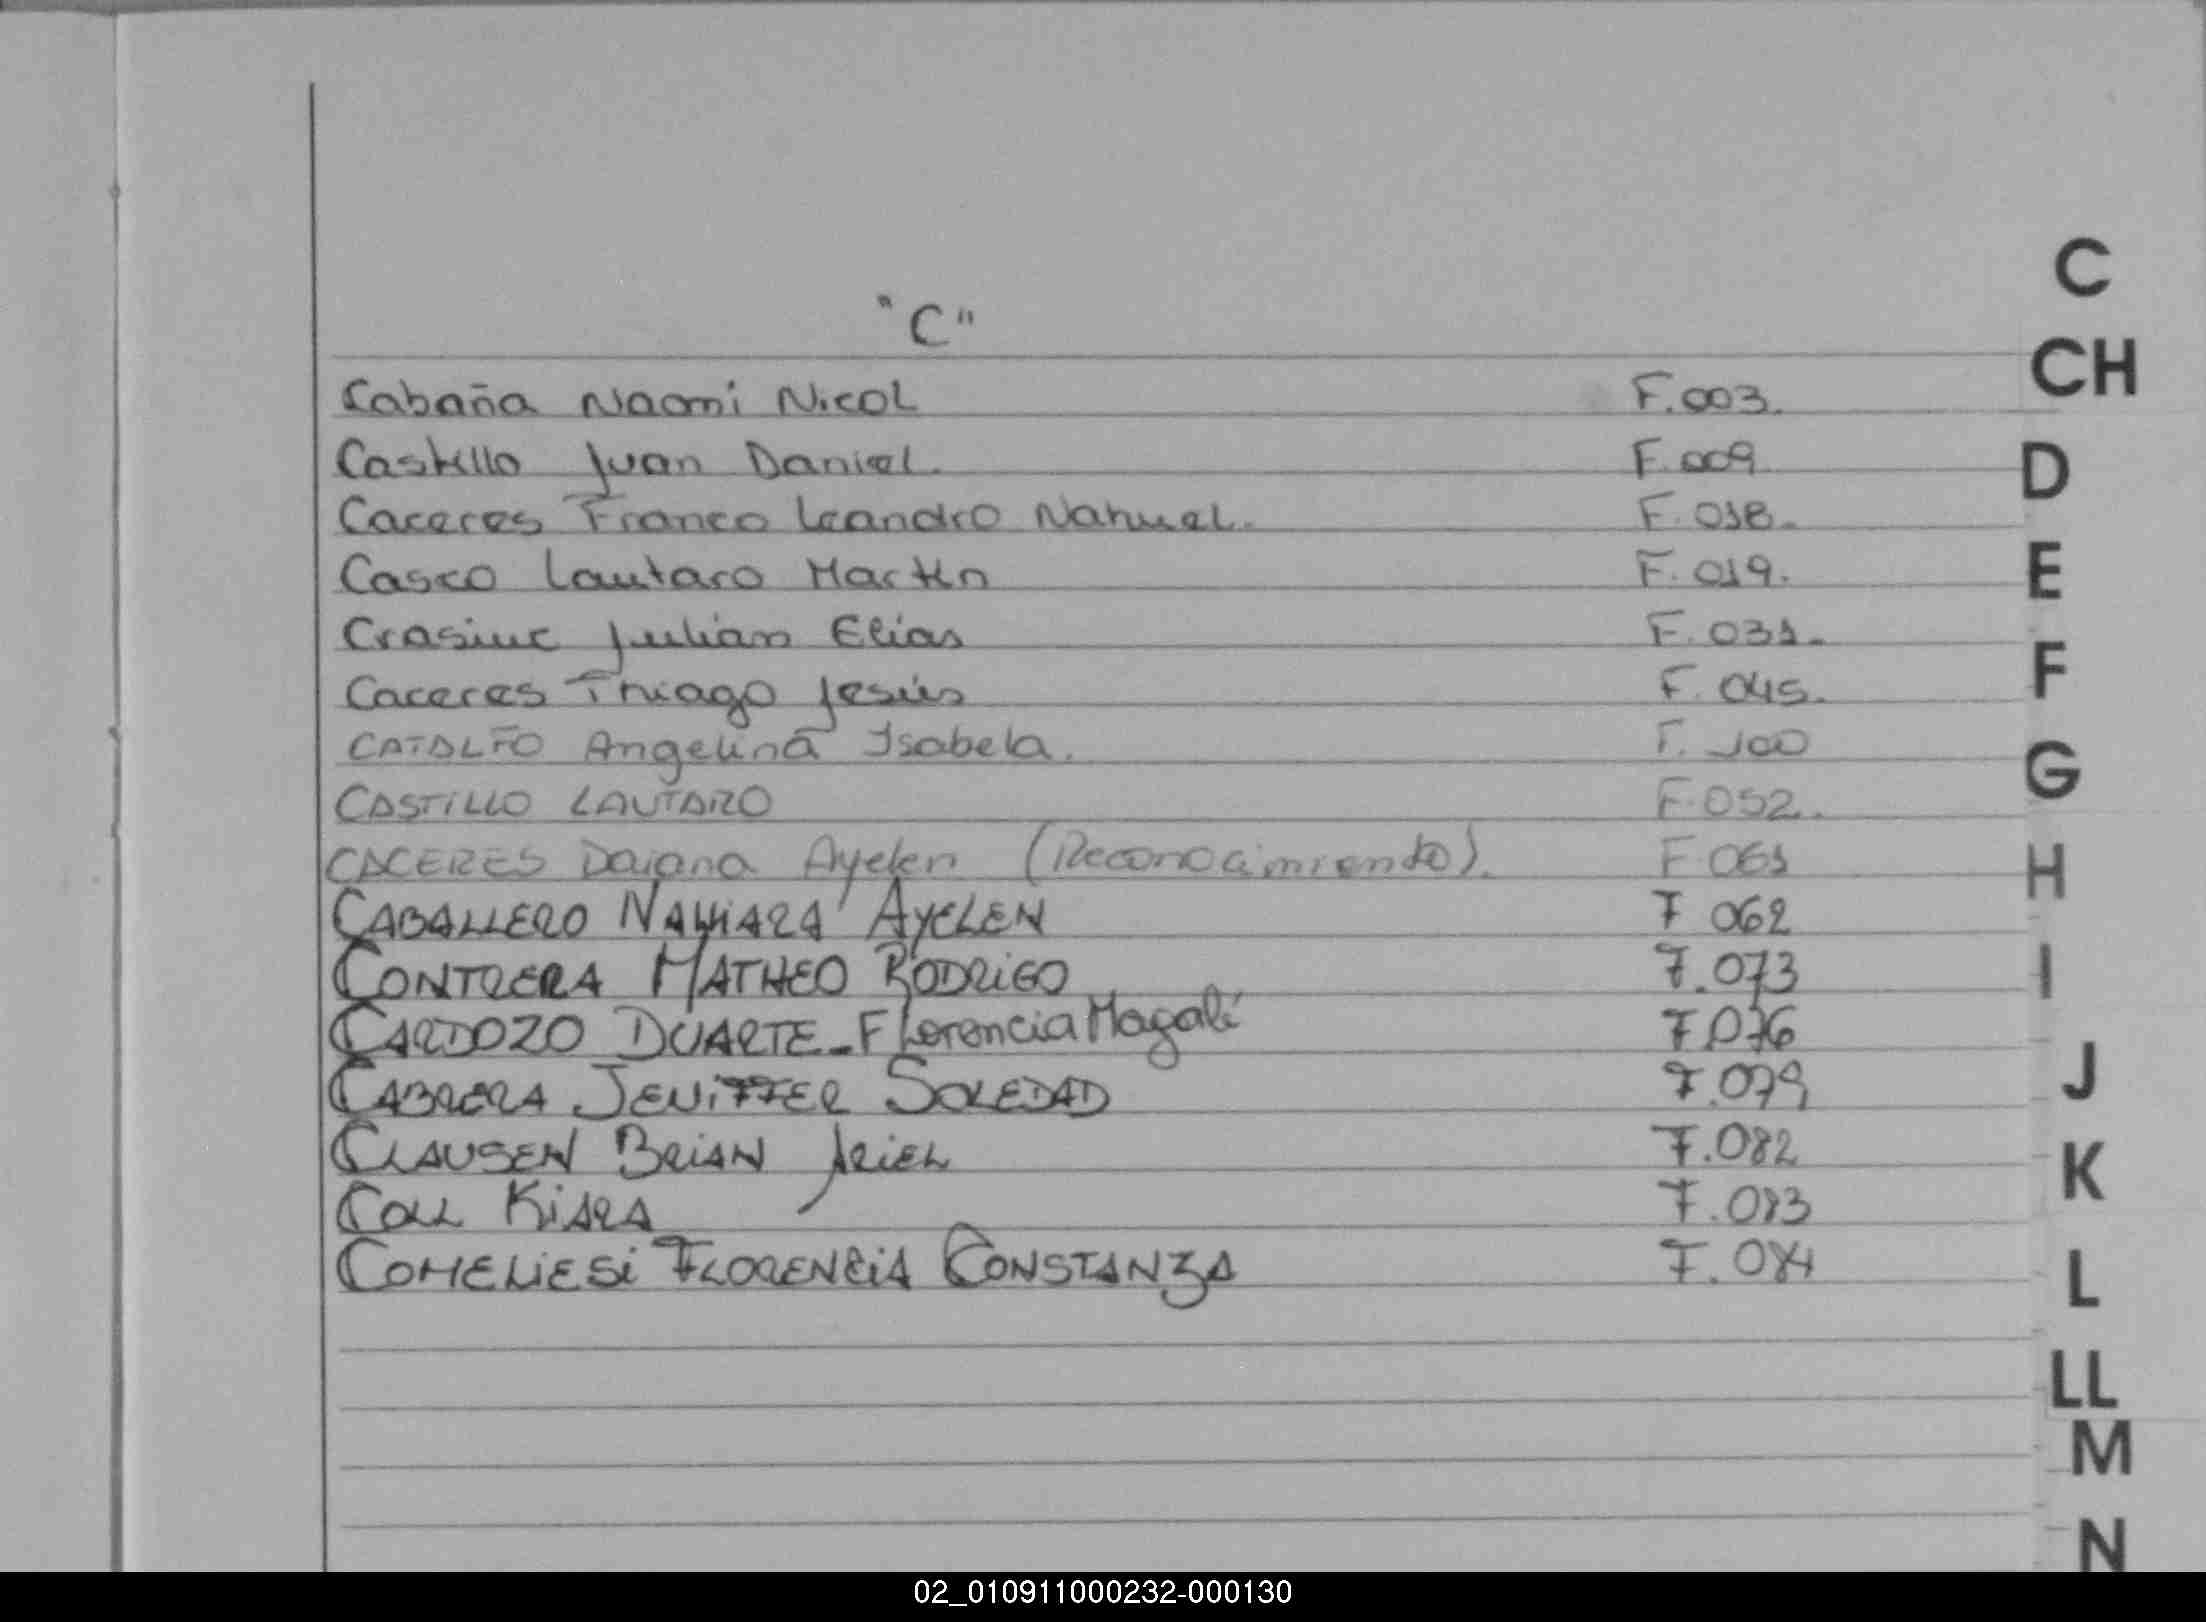 "C"
Cabaña Naomi Nicol F.003.
Castillo Juan Daniel. F.009
Caceres Franco Leandro Nahuel. F.018.
Casco Lautaro Martin F.019.
Crasiuc Julian Elias F.031.
Caceres Thiago Jesús F.045.
CATALFO Angelina Isabela. F.100
CASTILLO LAUTARO F.052.
CACERES Daiana Ayelen (Reconocimiento). F 061
CABALLERO NAHIARA AYELEN F 062
CONTRERA MATHEO RODRIGO F.073
CARDOZO DUARTE-Florencia Magalí F.076
CABRERA JENIFFER SOLEDAD F.079
CLAUSEN BRIAN ARIEL F.082
COLL KIARA F.083
COMELIESI FLORENCIA CONSTANZA F.084
C
CH
D
E
F
G
H
I
J
K
L
LL
M
N
02_010911000232-000130